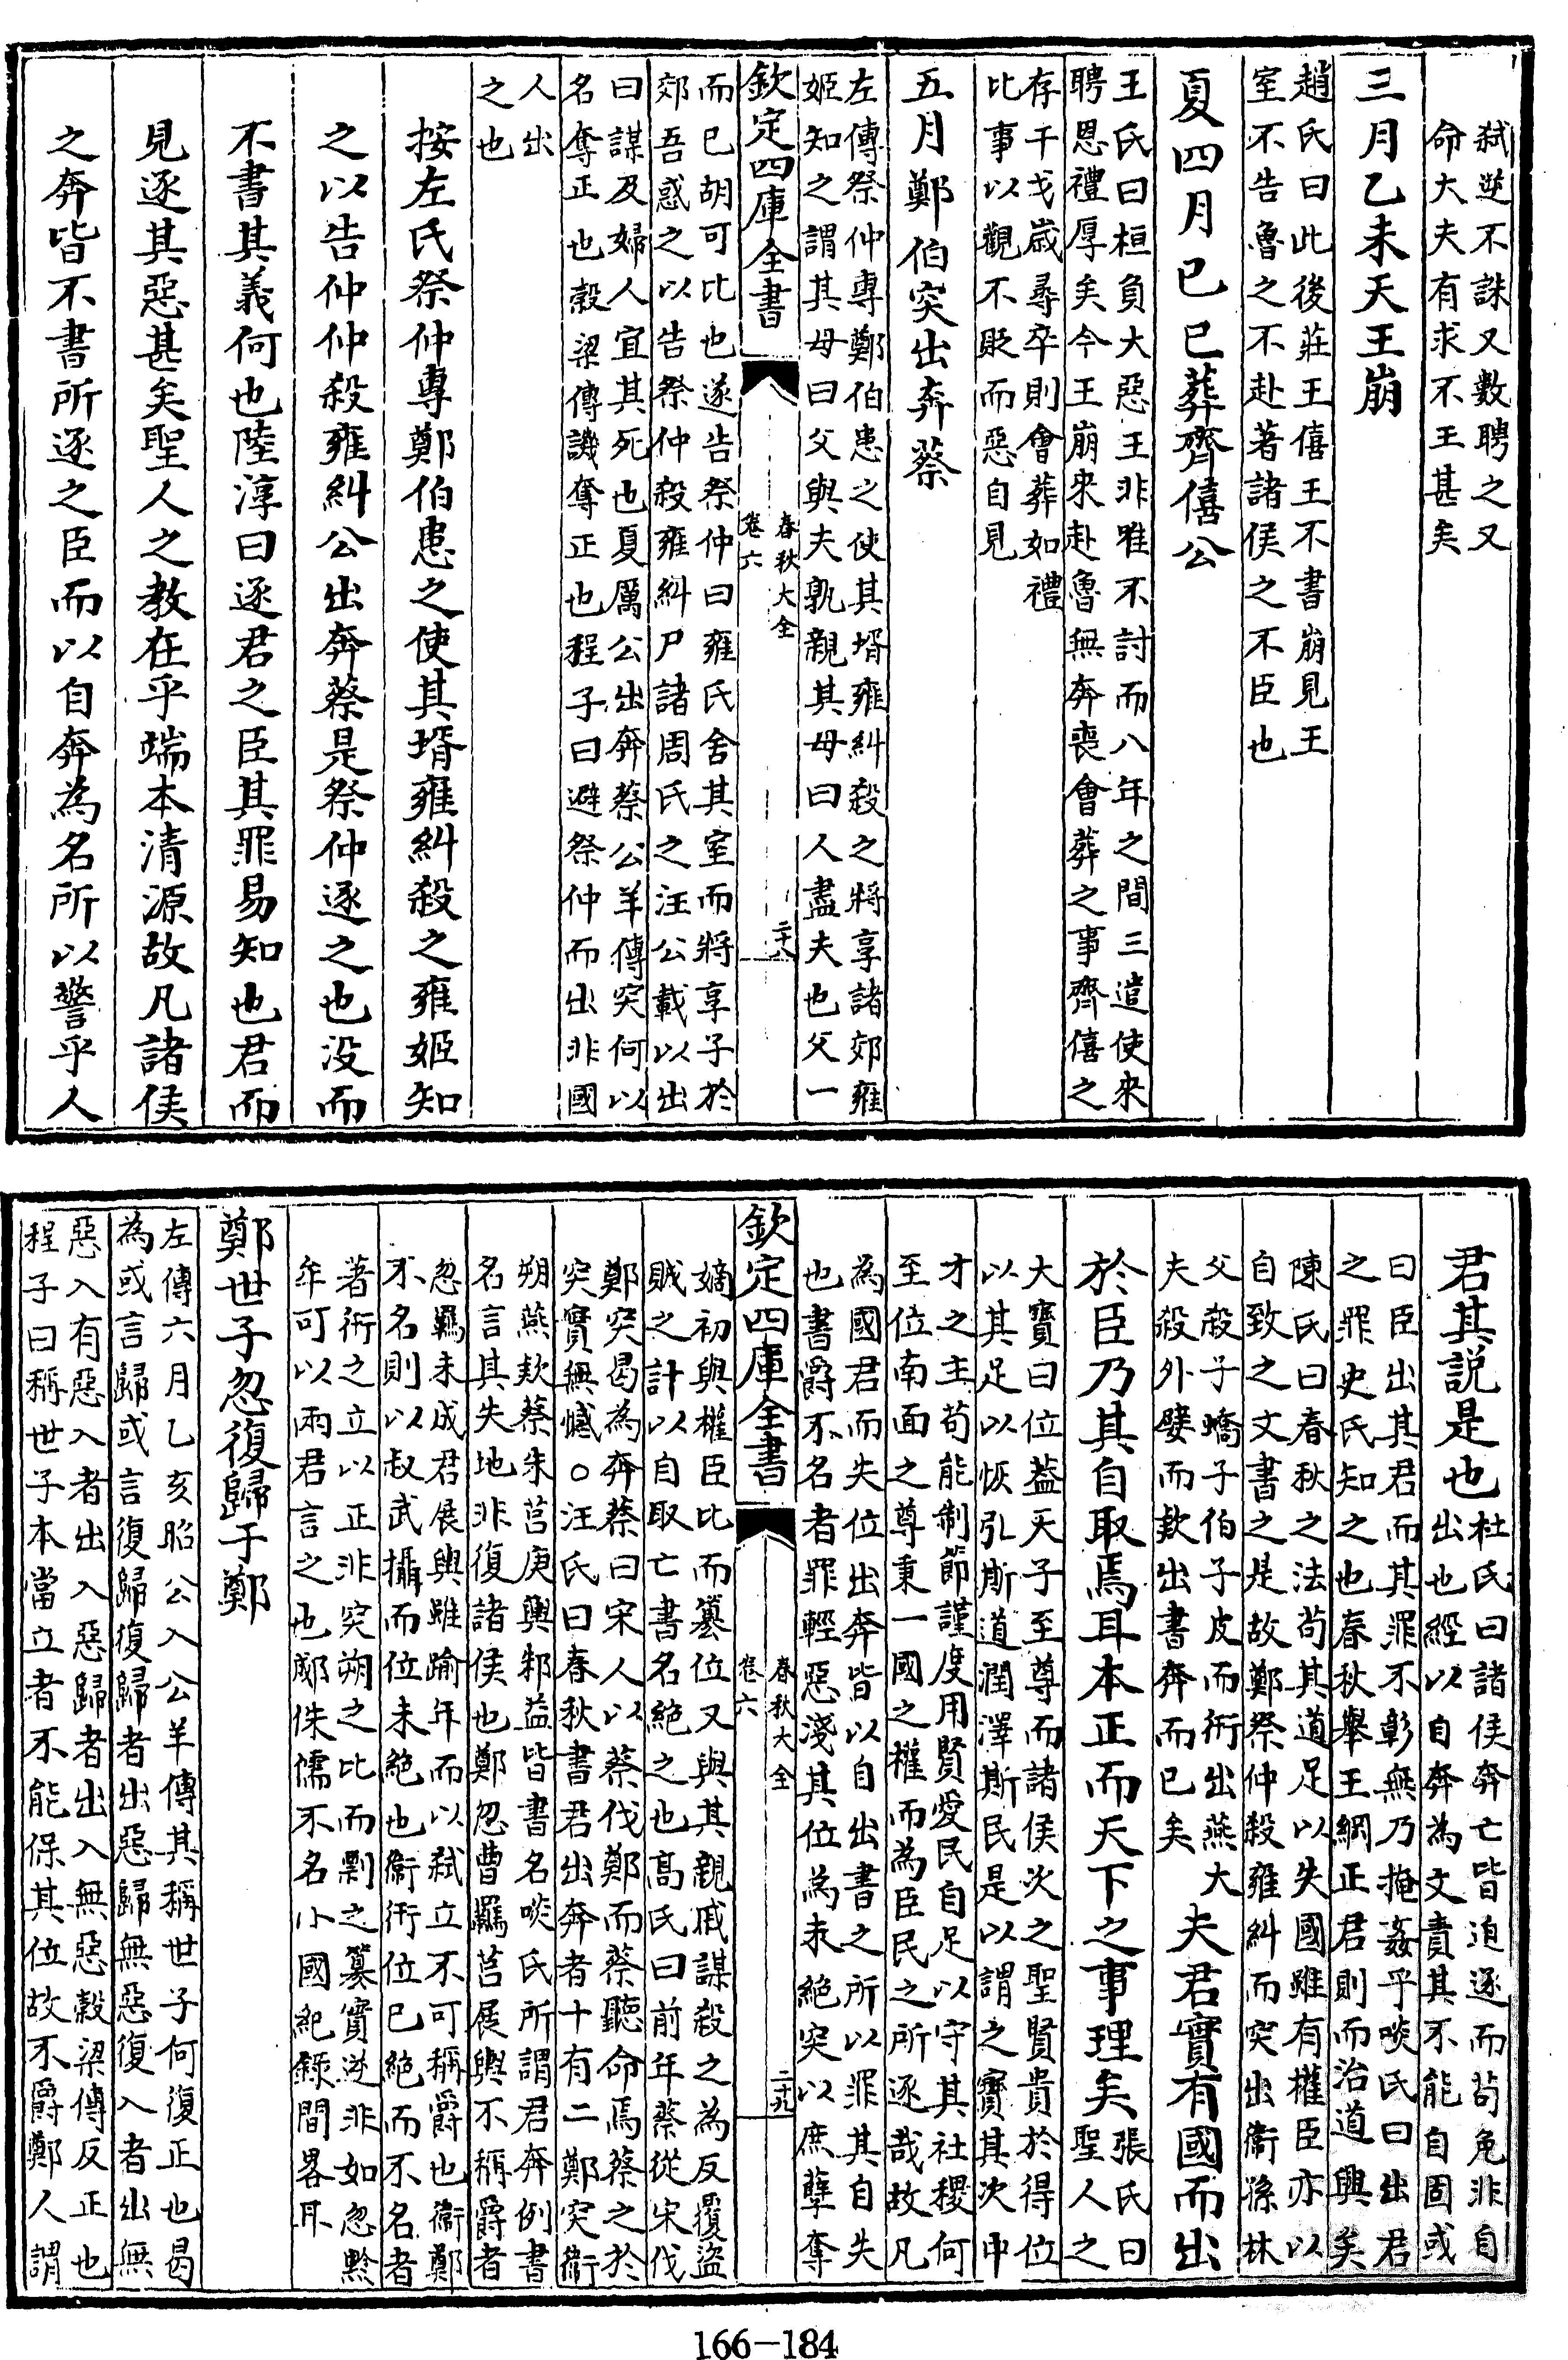 弑逆不誅又數聘之又
命大夫有求不王甚矣
三月乙未天王崩
趙氏曰此後莊王僖王不書崩見王
室不告魯之不赴著諸侯之不臣也
夏四月己巳葬齊僖公
王氏曰桓負大惡王非唯不討而八年之間三遣使來
聘恩禮厚矣今王崩來赴魯無奔喪會葬之事齊僖之
存干戈歲尋卒則會葬如禮
比事以觀不貶而惡自見
五月鄭伯突出奔蔡
左傳祭仲專鄭伯患之使其壻雍糾殺之將享諸郊雍
姬知之謂其母曰父與夫孰親其母曰人盡夫也父一
欽定四庫全書
春秋大全
卷六
二十八
而已胡可比也遂告祭仲曰雍氏舍其室而將享子於
郊吾惑之以告祭仲殺雍糾尸諸周氏之汪公載以出
曰謀及婦人宜其死也夏厲公出奔蔡公羊傳突何以
名奪正也榖梁傳譏奪正也程子曰避祭仲而出非國
人出
之也
按左氏祭仲專鄭伯患之使其壻雍糾殺之雍姬知
之以告仲仲殺雍糾公出奔蔡是祭仲逐之也没而
不書其義何也陸淳曰逐君之臣其罪易知也君而
見逐其惡甚矣聖人之教在乎端本清源故凡諸侯
之奔皆不書所逐之臣而以自奔為名所以警乎人
君其説是也
杜氏曰諸侯奔亡皆迫逐而苟免非自
出也經以自奔為文責其不能自固或
曰臣出其君而其罪不彰無乃掩姦乎啖氏曰出君
之罪史氏知之也春秋舉王綱正君則而治道興矣
陳氏曰春秋之法苟其道足以失國雖有權臣亦以
自致之文書之是故鄭祭仲殺雍糾而突出衞孫林
父殺子蟜子伯子皮而衎出燕大
夫殺外嬖而欵出書奔而已矣
夫君實有國而出
於臣乃其自取焉耳本正而天下之事理矣
張氏曰
聖人之
大寶曰位蓋天子至尊而諸侯次之聖賢貴於得位
以其足以恢弘斯道潤澤斯民是以謂之寶其次中
才之主苟能制節謹度用賢愛民自足以守其社稷何
至位南面之尊秉一國之權而為臣民之所逐哉故凡
為國君而失位出奔皆以自出書之所以罪其自失
也書爵不名者罪輕惡淺其位為未絶突以庶孽奪
欽定四庫全書
春秋大全
卷六
二十九
嫡初與權臣比而簒位又與其親戚謀殺之為反覆盜
賊之計以自取亡書名絶之也髙氏曰前年蔡從宋伐
鄭突曷為奔蔡曰宋人以蔡伐鄭而蔡聽命焉蔡之於
突實無憾○汪氏曰春秋書君出奔者十有二鄭突衞
朔燕欵蔡朱莒庚輿邾益皆書名啖氏所謂君奔例書
名言其失地非復諸侯也鄭忽曹羈莒展輿不稱爵者
忽羈未成君展輿雖踰年而以弑立不可稱爵也衞鄭
不名則以叔武攝而位未絶也衞衎位已絶而不名者
著衎之立以正非突朔之比而剽之簒實逆非如忽黔
牟可以兩君言之也郕侏儒不名小國紀錄間畧耳
鄭世子忽復歸于鄭
左傳六月乙亥昭公入公羊傳其稱世子何復正也曷
為或言歸或言復歸復歸者出惡歸無惡復入者出無
惡入有惡入者出入惡歸者出入無惡榖梁傳反正也
程子曰稱世子本當立者不能保其位故不爵鄭人謂
166—184